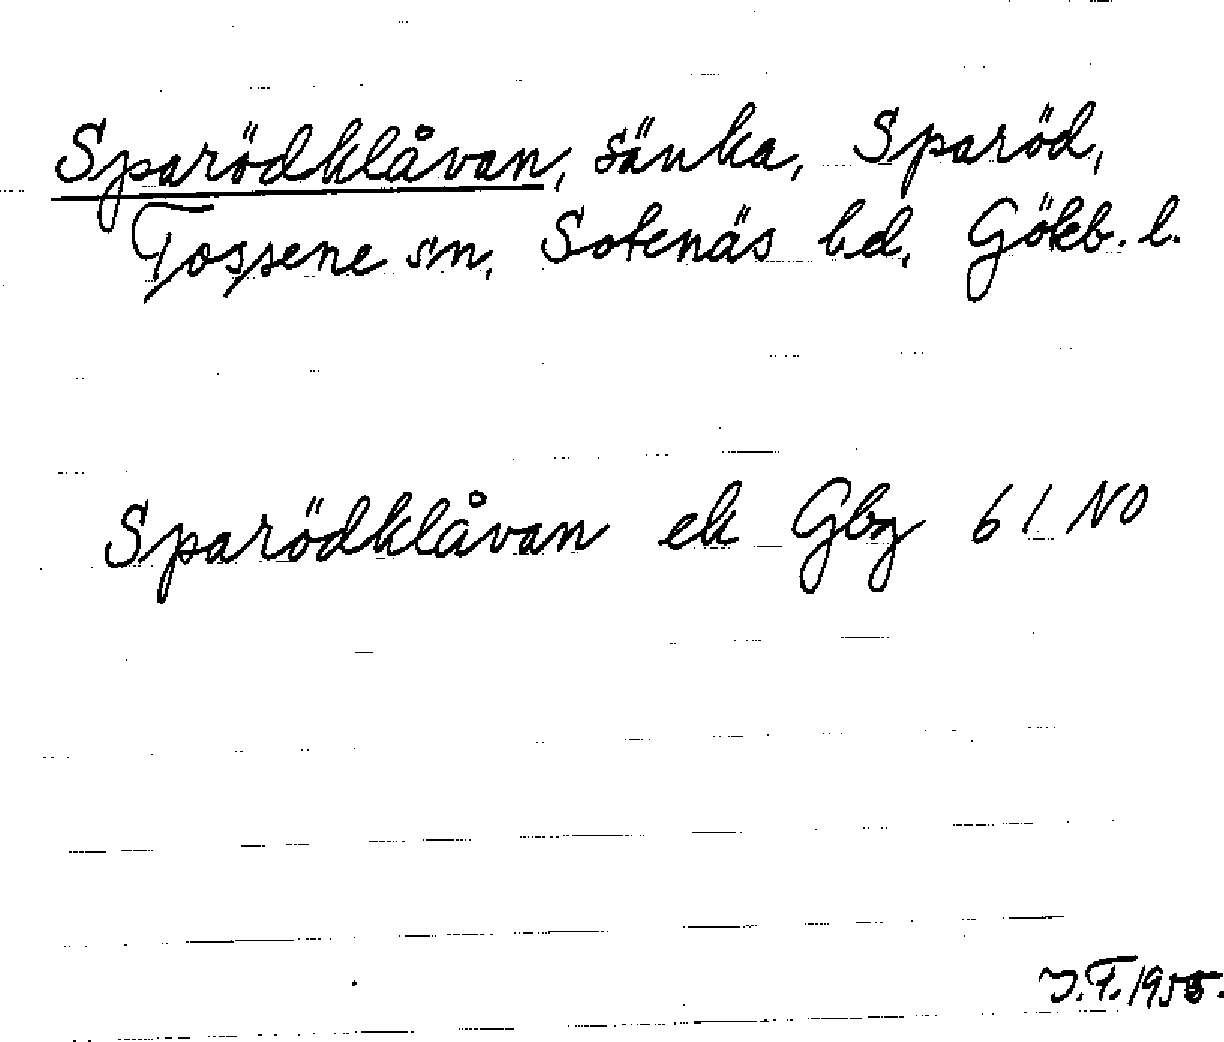 Sparödklåvan, sänka, Sparöd,
Tossene sn, Sotenäs hd, Gökb. l.
Sparödklåvan ek Gbg 61 NO
J.F. 1955.